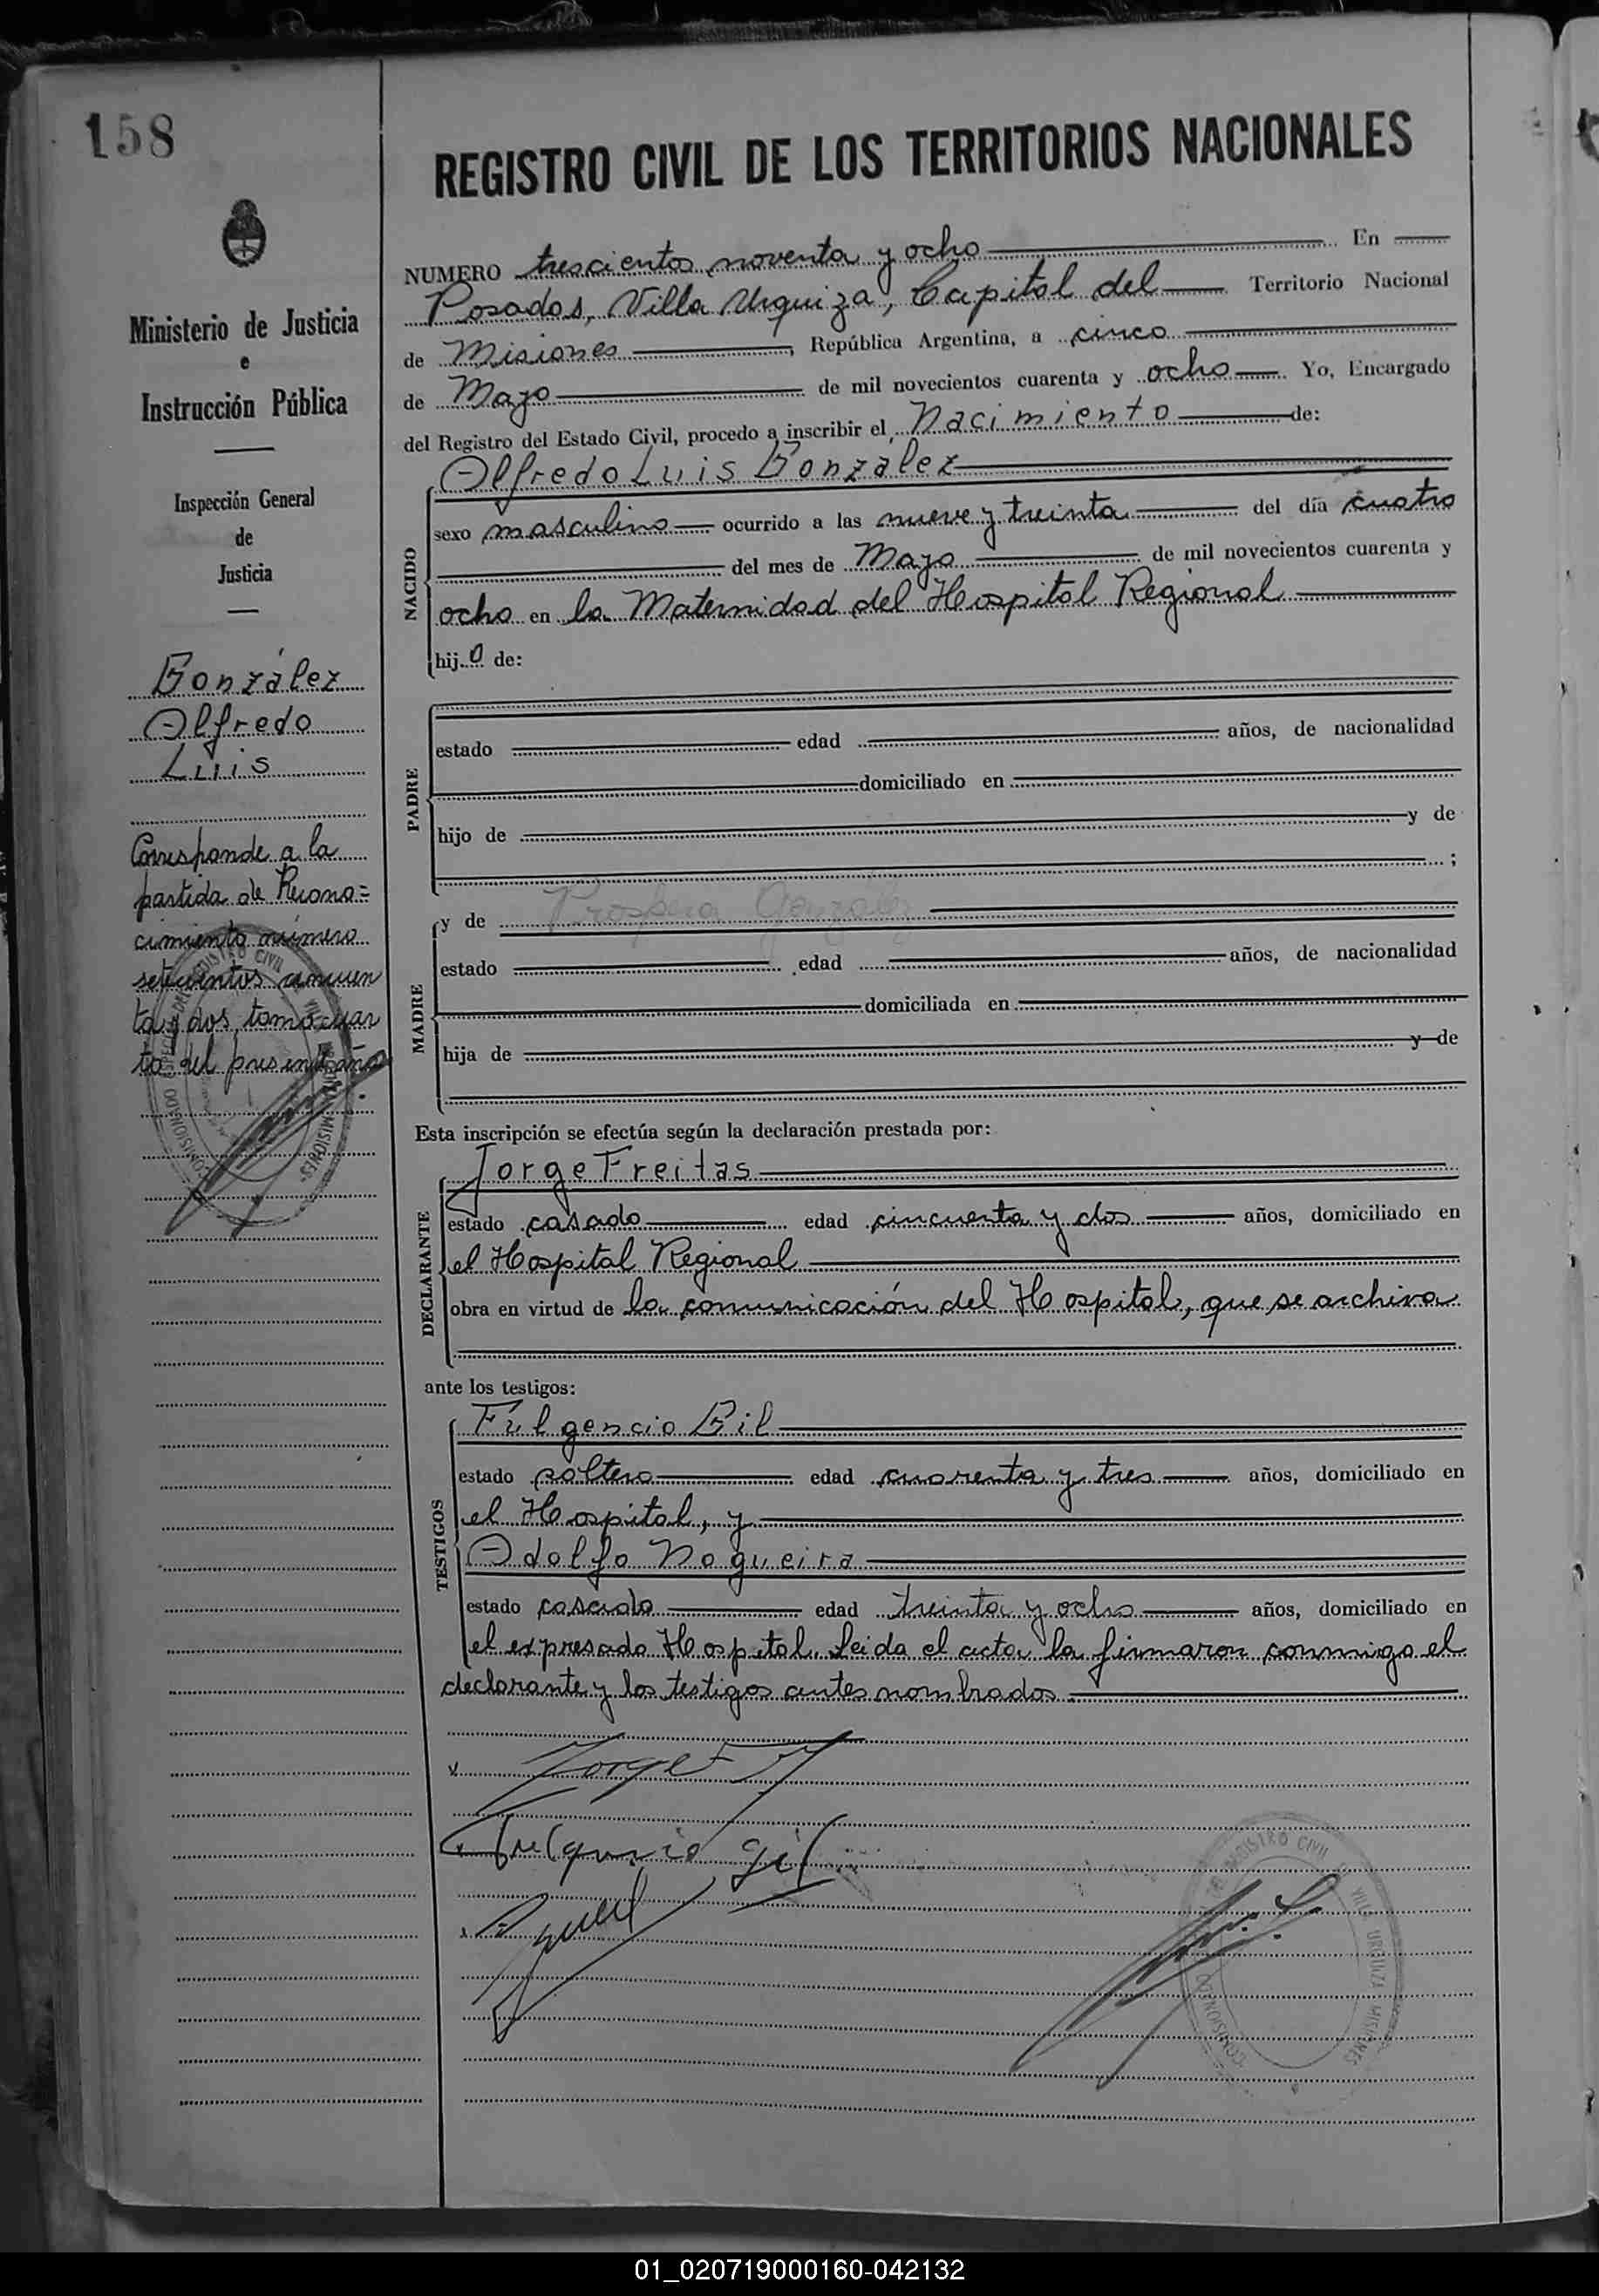 158
Ministerio de Justicia
e
Instrucción Pública
Inspección General
de
Justicia
González
Alfredo
Luis
Corresponde a la
partida de Recono=
cimiento número
setecientos cincuen
ta y dos, tomo cuar
to del presente año
REGISTRO CIVIL DE LOS TERRITORIOS NACIONALES
NUMERO trescientos noventa y ocho En
Posadas, Villa Urquiza, Capital del Territorio Nacional
de Misiones, República Argentina, a cinco
de Mayo de mil novecientos cuarenta y ocho Yo, Encargado
del Registro del Estado Civil, procedo a inscribir el Nacimiento de:
NACIDO
Alfredo Luis Gonzalez
sexo masculino ocurrido a las nueve y treinta del día cuatro
del mes de Mayo de mil novecientos cuarenta y
ocho en la Maternidad del Hospital Regional
hijo de:
PADRE
estado edad años, de nacionalidad
domiciliado en
hijo de y de
;
MADRE
y de Prospera Gonzalez
estado edad años, de nacionalidad
domiciliada en
hija de y de
Esta inscripción se efectúa según la declaración prestada por:
DECLARANTE
Jorge Freitas
estado casado edad cincuenta y dos años, domiciliado en
el Hospital Regional
obra en virtud de la comunicación del Hospital, que se archiva
ante los testigos:
TESTIGOS
Fulgencio Gil
estado soltero edad cuarenta y tres años, domiciliado en
el Hospital, y
Adolfo Nogueira
estado casado edad treinta y ocho años, domiciliado en
el expresado Hospital. Leida el acta la firmaron conmigo el
declarante y los testigos antes nombrados.
Fulgencio Gil
REGISTRO CIVIL VILLA URQUIZA MISIONES
COMISIONADO
01_020719000160-042132